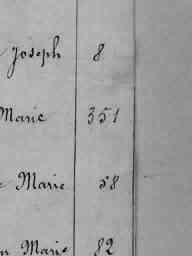 Joseph 8
Marie 351
Marie 58
Marie 82